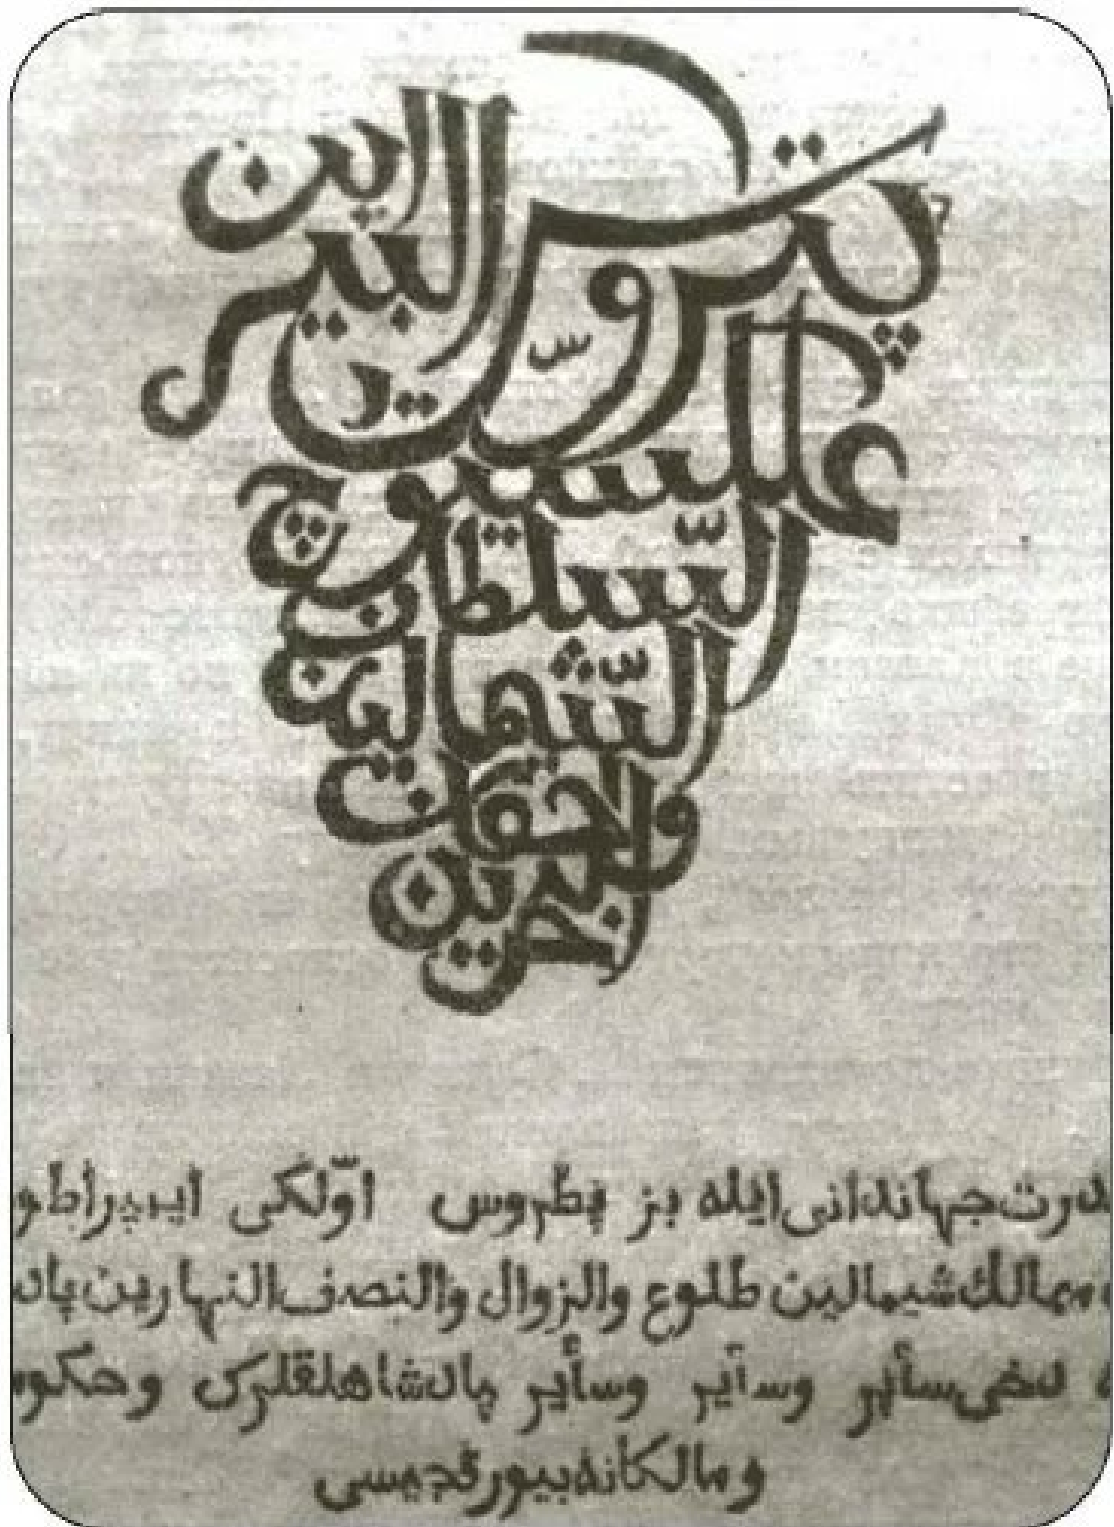 پتروس
البرين
علكسيوچ
السلطان
الشمالين
ولاحقان
البحرين
جهاندانی ایله بز پطروس اوّلکی ایمپراطو
ممالك شیمالین طلوع والزوال والنصف النهارین پاد
سأیر وسآیر وسأیر پادشاهلقلرک وحکوم
ومالکانه بیورقدیمسی